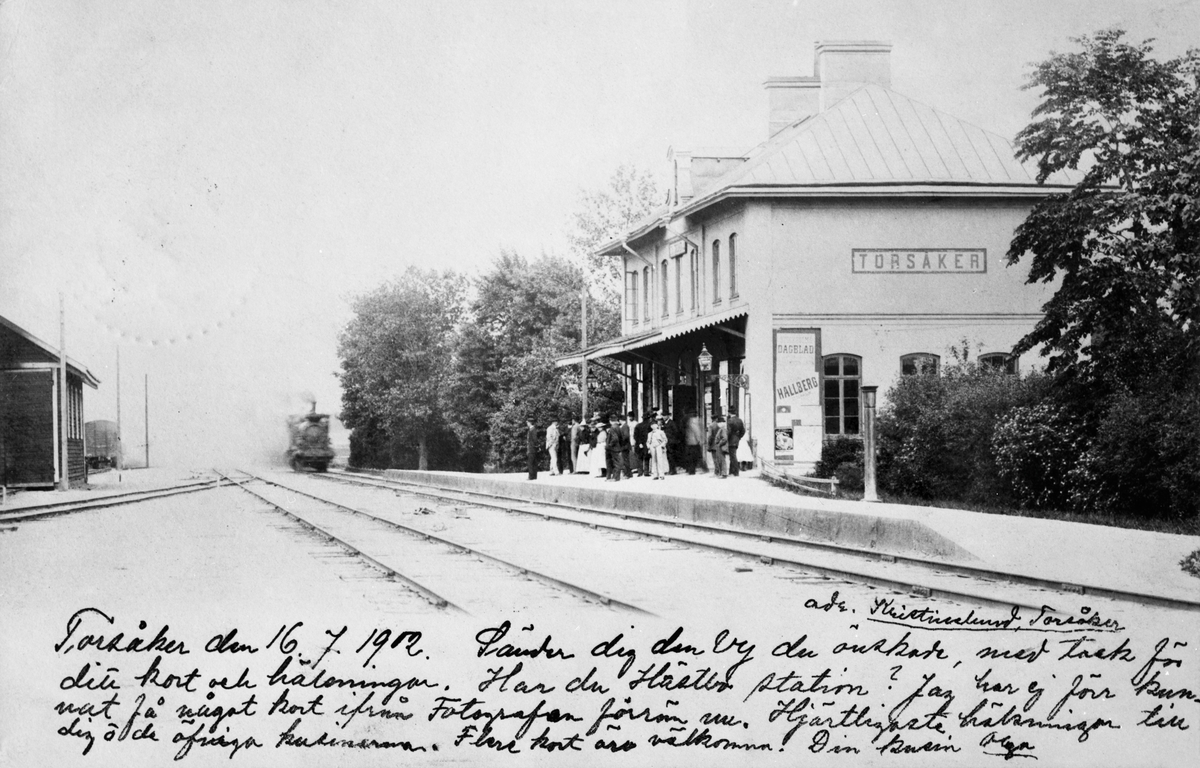 TORSÅKER
DAGBLAD
HALLBERG
adr. Kristinelund, Torsåker
Torsåker den 16. 7. 1902. Sänder dig den Vy du önskade, med tack för
ditt kort och hälsningar. Har du Hästbo station? Jag har ej förr kun
nat få något kort ifrån Fotografen förrän nu. Hjärtligaste hälsningar till
dig o de öfriga kusinerna. Flere kort äro välkomna. Din kusin Olga